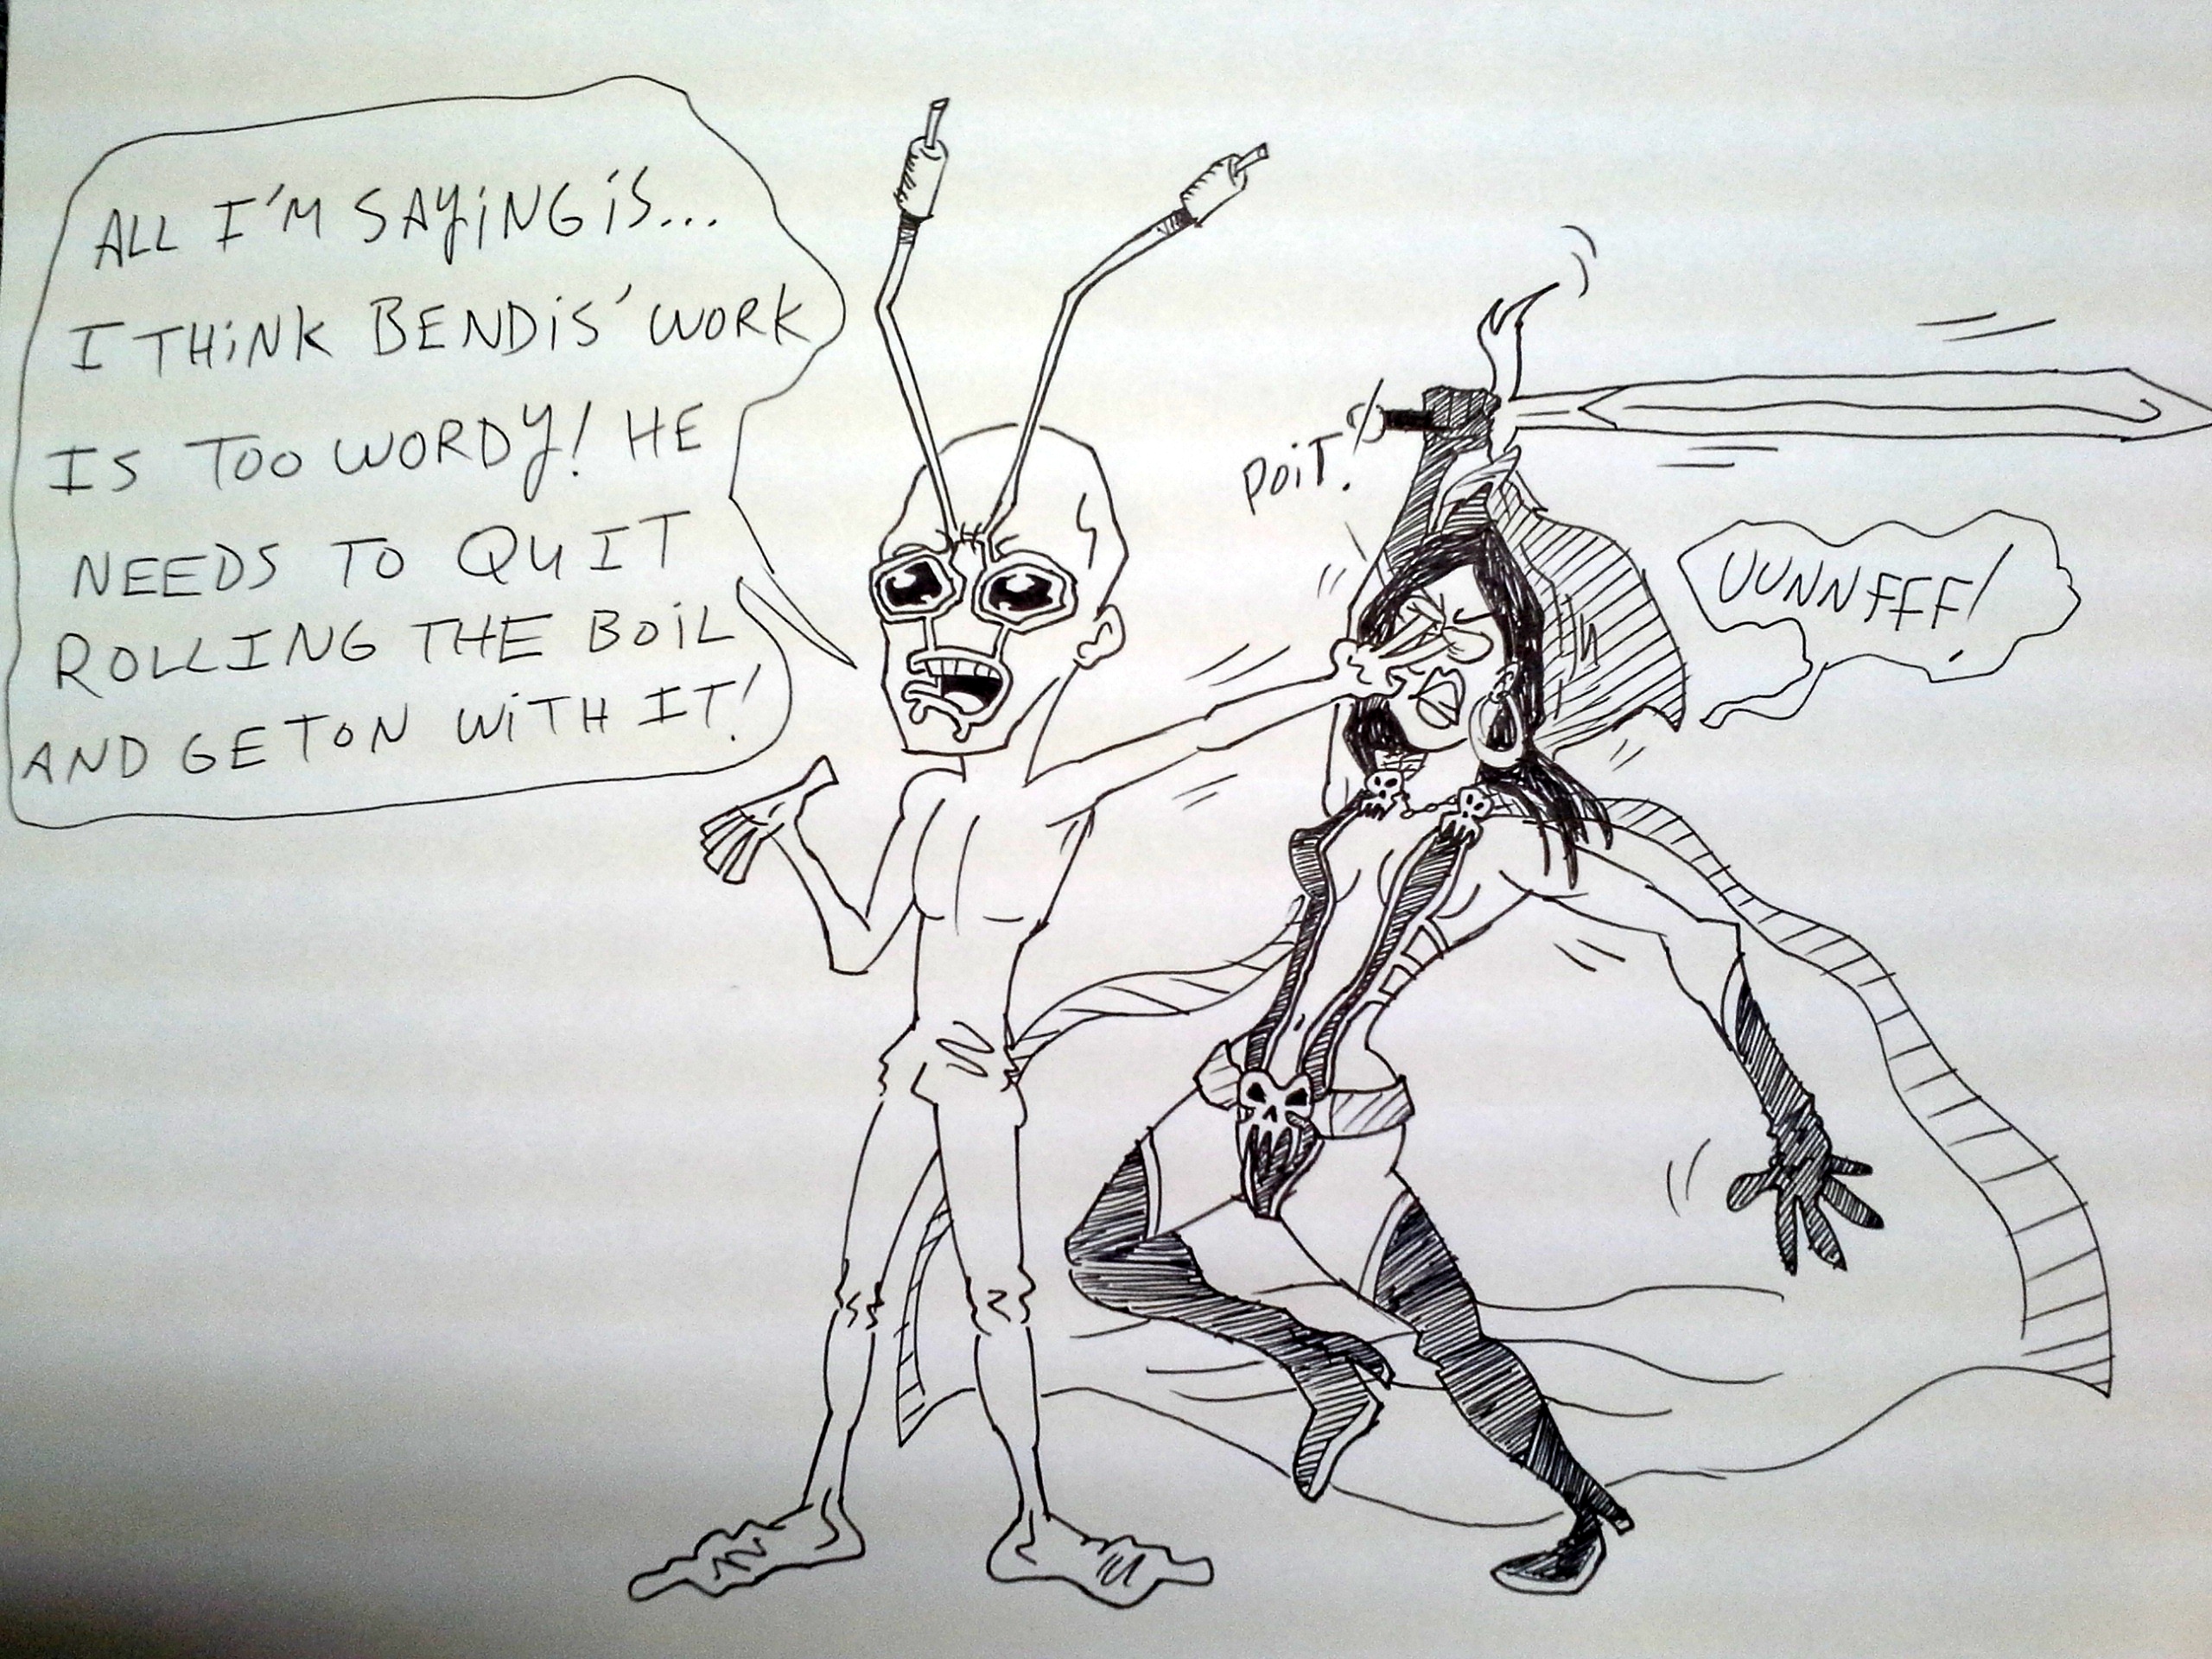 ALL I'M SAYiNG iS...
I THiNK BENDiS' WORK
IS TOO WORDY! HE
NEEDS TO QUIT
ROLLING THE BOiL
AND GET ON WiTH IT!
POiT!
UUNNFFF!